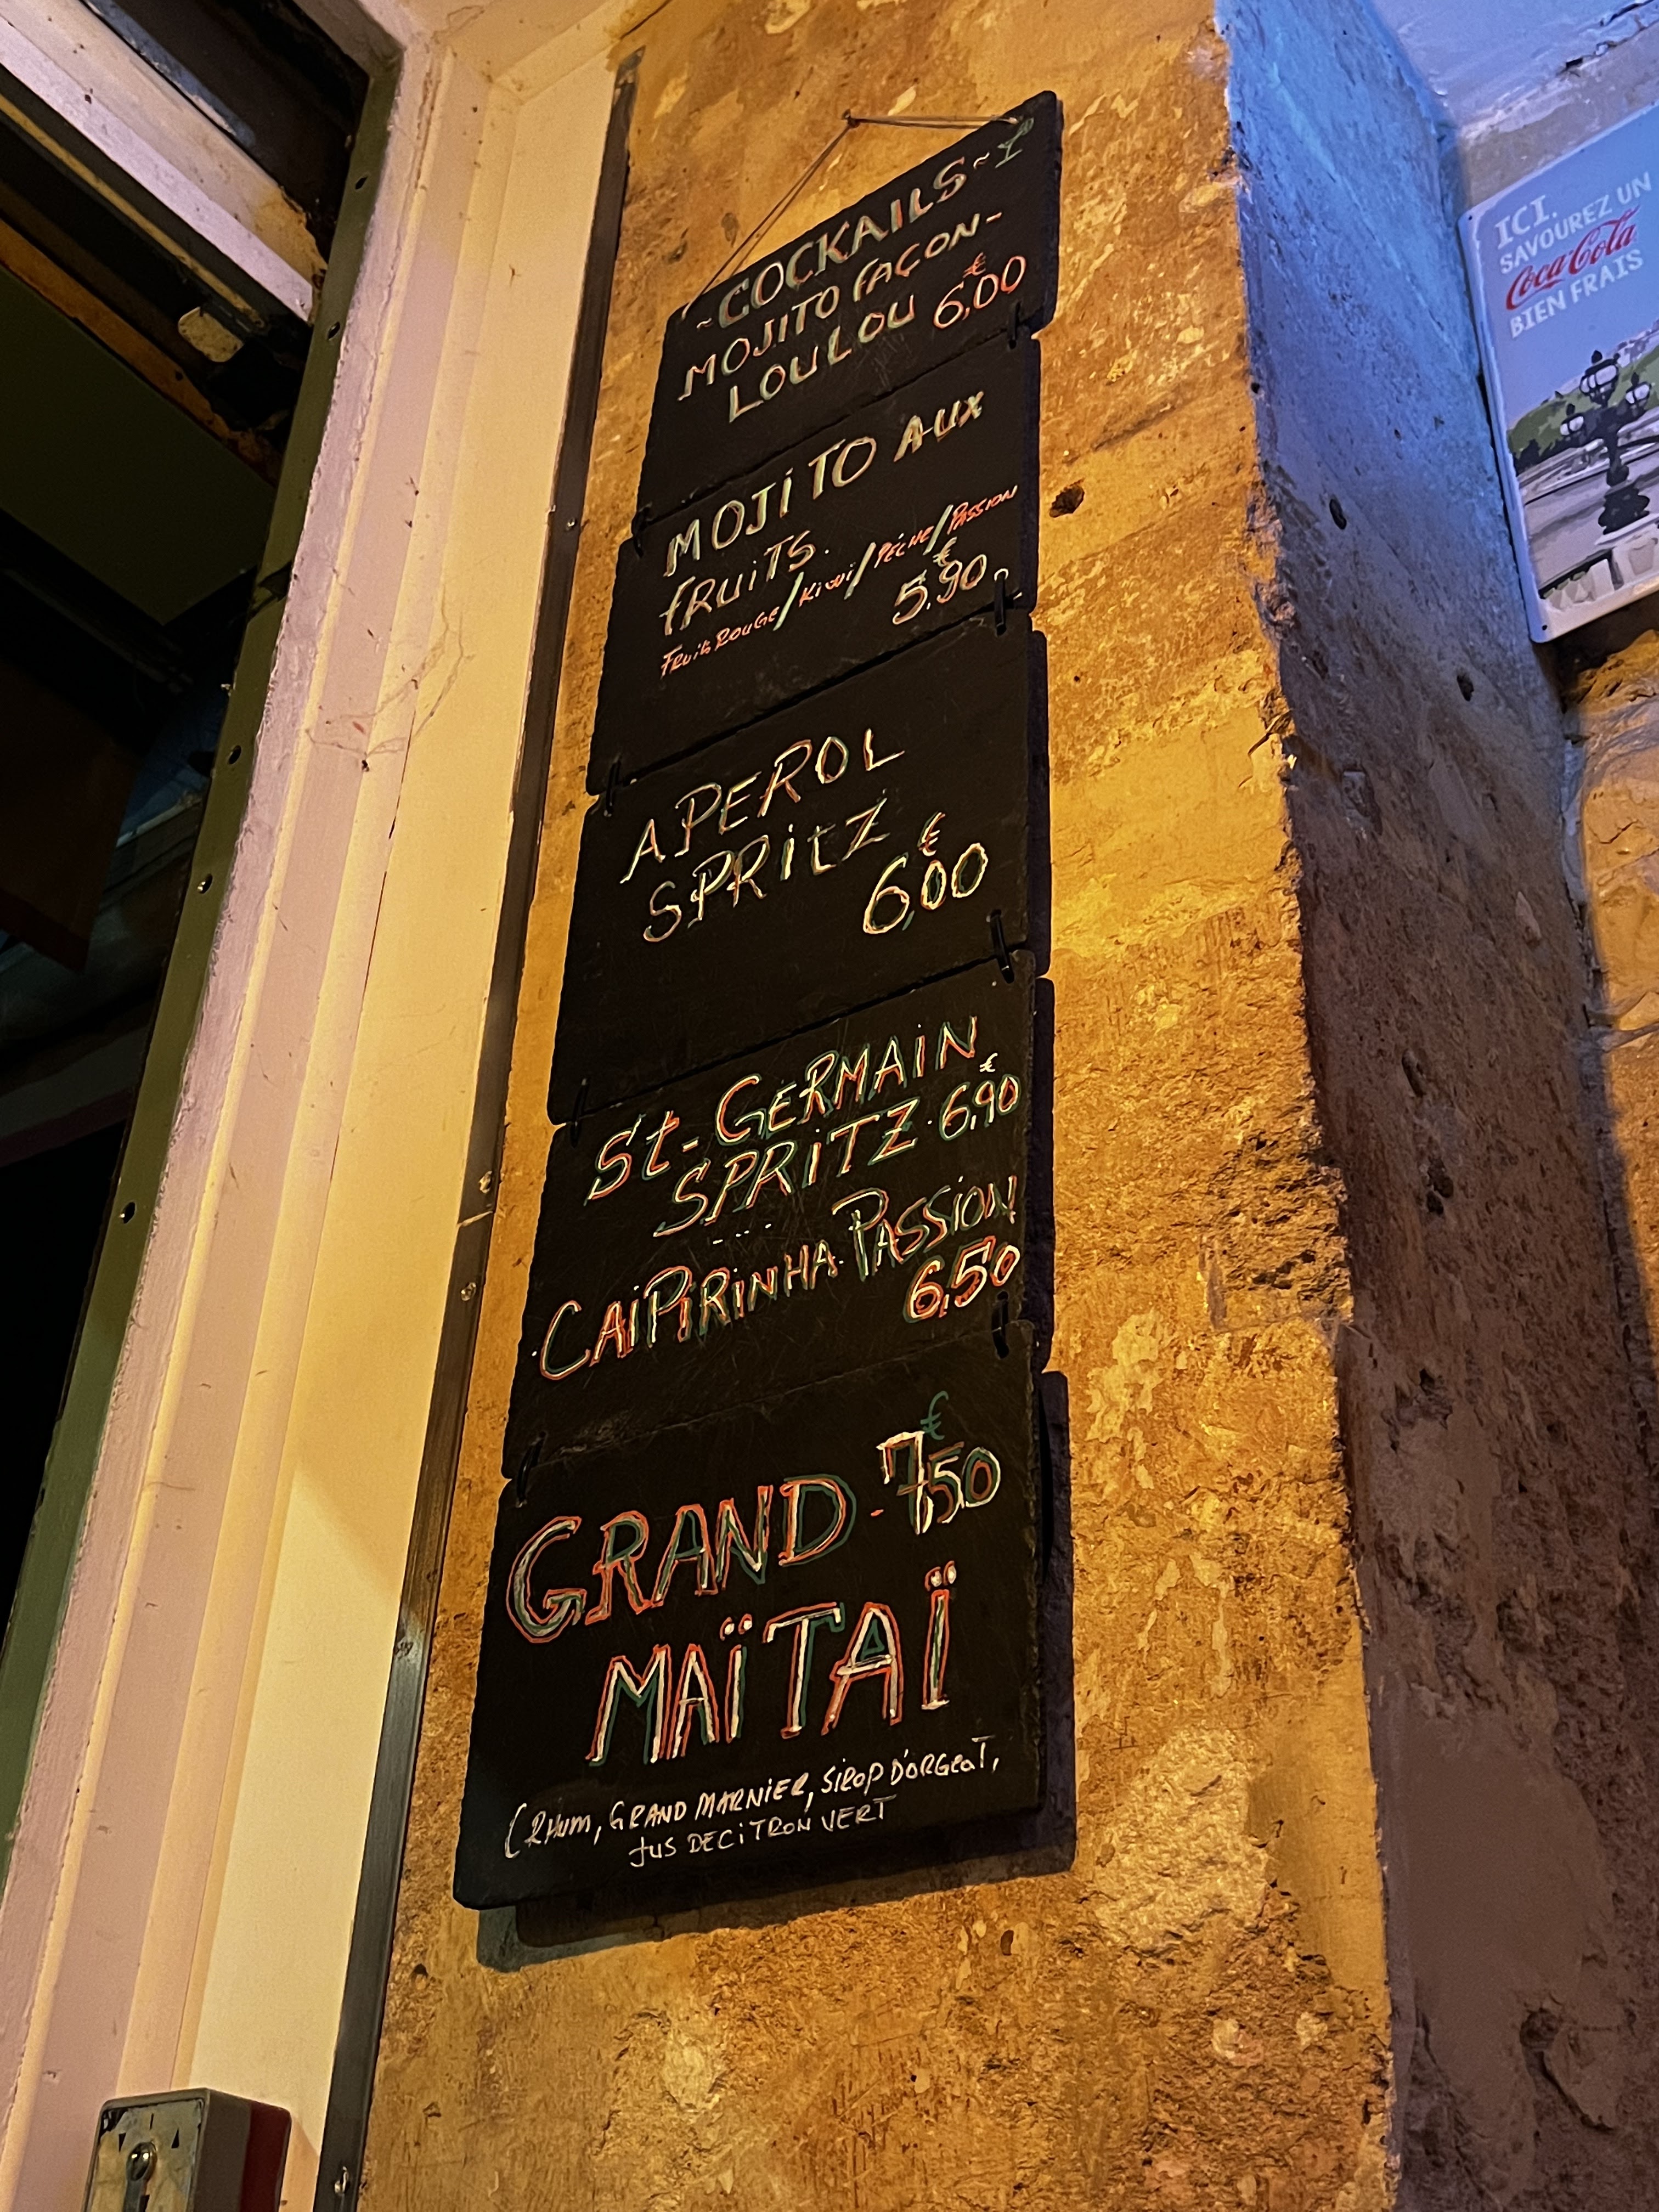 ~COCKAILS~
MOJITO FAÇON-
LOULOU 6,00€
MOJiTO AUX
FRUiTS.
Fruits Rouge/Kiwi/PÊCHE/PASSION
5,90€
APEROL
SPRitZ
6,00€
St-GERMAiN
SPRiTZ. 6,90€
...
CAiPiRiNHA PASSiON
6,50
GRAND - 7,50€
MAÏTAÏ
(RHum, GRAND MARNiER, SiROP D'ORGEaT,
JUS DE CiTRON VERT
ICI,
SAVOUREZ UN
Coca-Cola
BIEN FRAIS